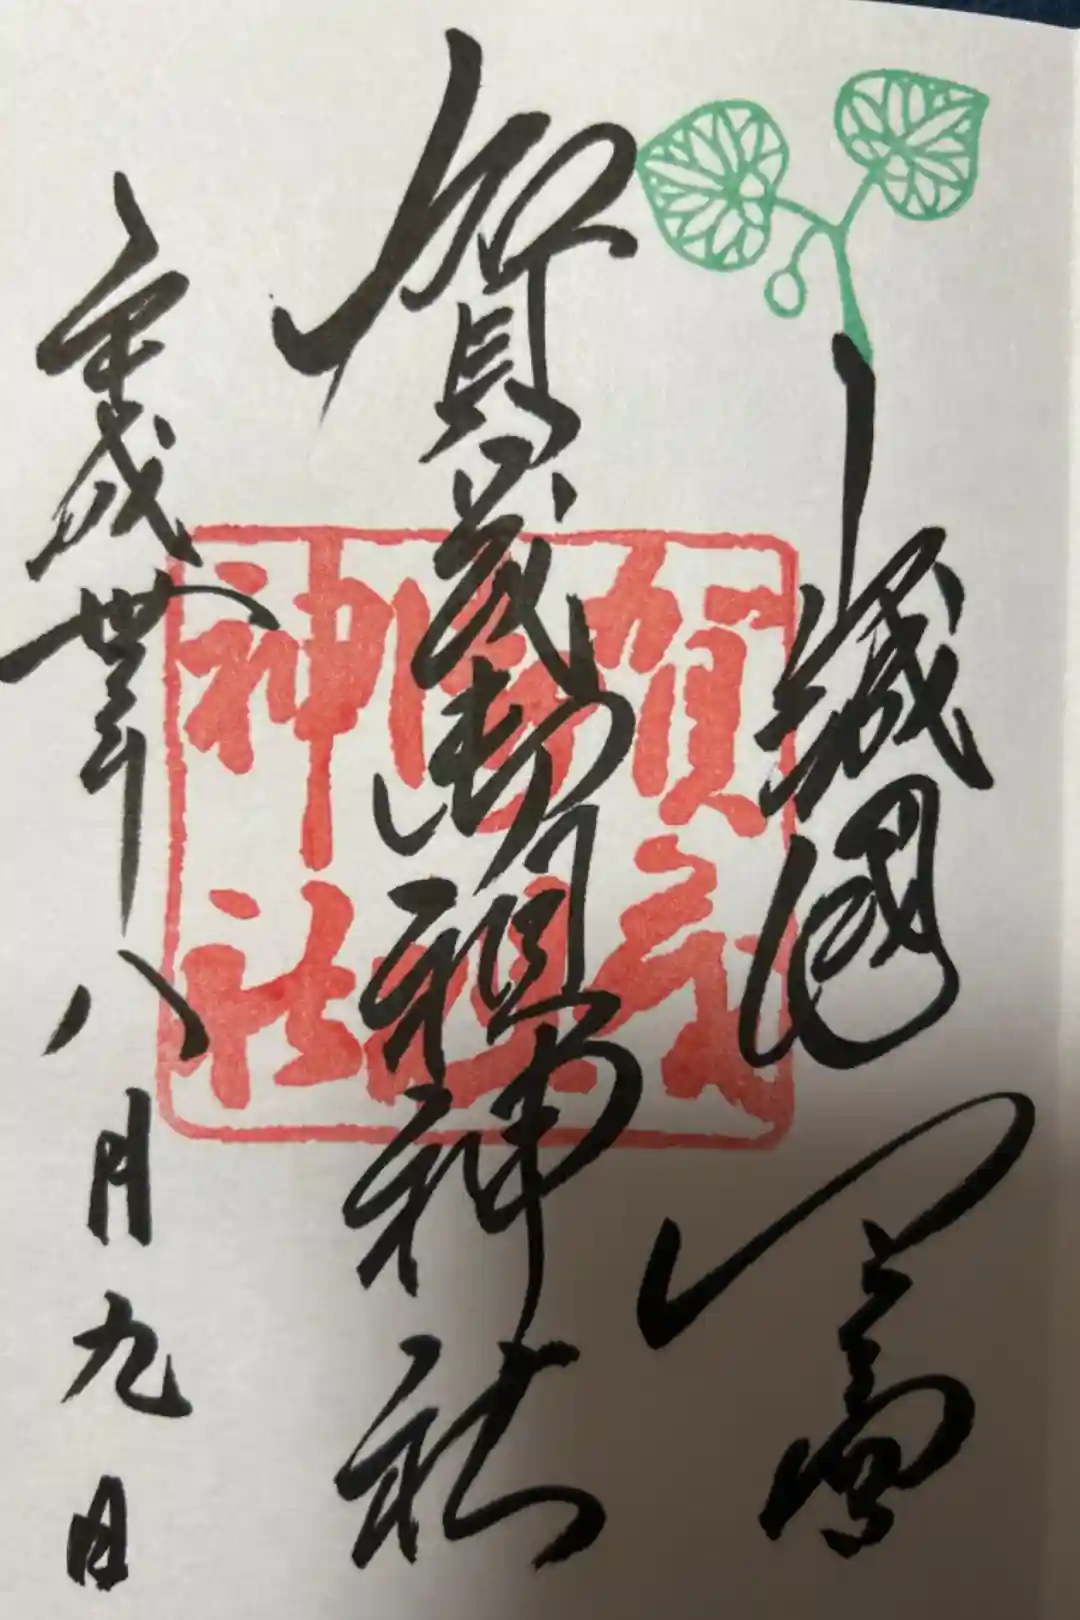 山城國一宮
賀茂御祖神社
平成丗年八月九日
賀茂
御祖
神社